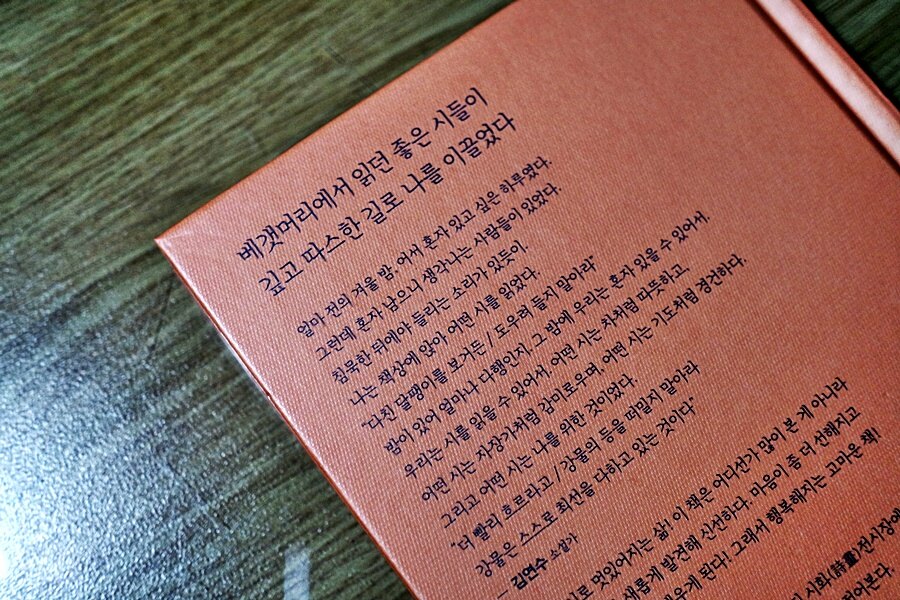 베갯머리에서 읽던 좋은 시들이
깊고 따스한 길로 나를 이끌었다
얼마 전의 겨울 밤, 어서 혼자 있고 싶은 하루였다.
그런데 혼자 남으니 생각나는 사람들이 있었다.
침묵한 뒤에야 들리는 소리가 있듯이.
나는 책상에 앉아 어떤 시를 읽었다.
"다친 달팽이를 보거든 / 도우려 들지 말아라"
밤이 있어 얼마나 다행인지, 그 밤에 우리는 혼자 있을 수 있어서,
우리는 시를 읽을 수 있어서. 어떤 시는 차처럼 따뜻하고,
어떤 시는 자장가처럼 감미로우며, 어떤 시는 기도처럼 경건하다.
그리고 어떤 시는 나를 위한 것이었다.
"더 빨리 흐르라고 / 강물의 등을 떠밀지 말아라
강물은 스스로 최선을 다하고 있는 것이다"
— 김연수 소설가
로 멋있어지는 삶! 이 책은 어디선가 많이 본 게 아니라
새롭게 발견해 신선하다. 마음이 좀 더 선해지고
게 된다! 그래서 행복해지는 고마운 책!
시화(詩畫) 전시장에